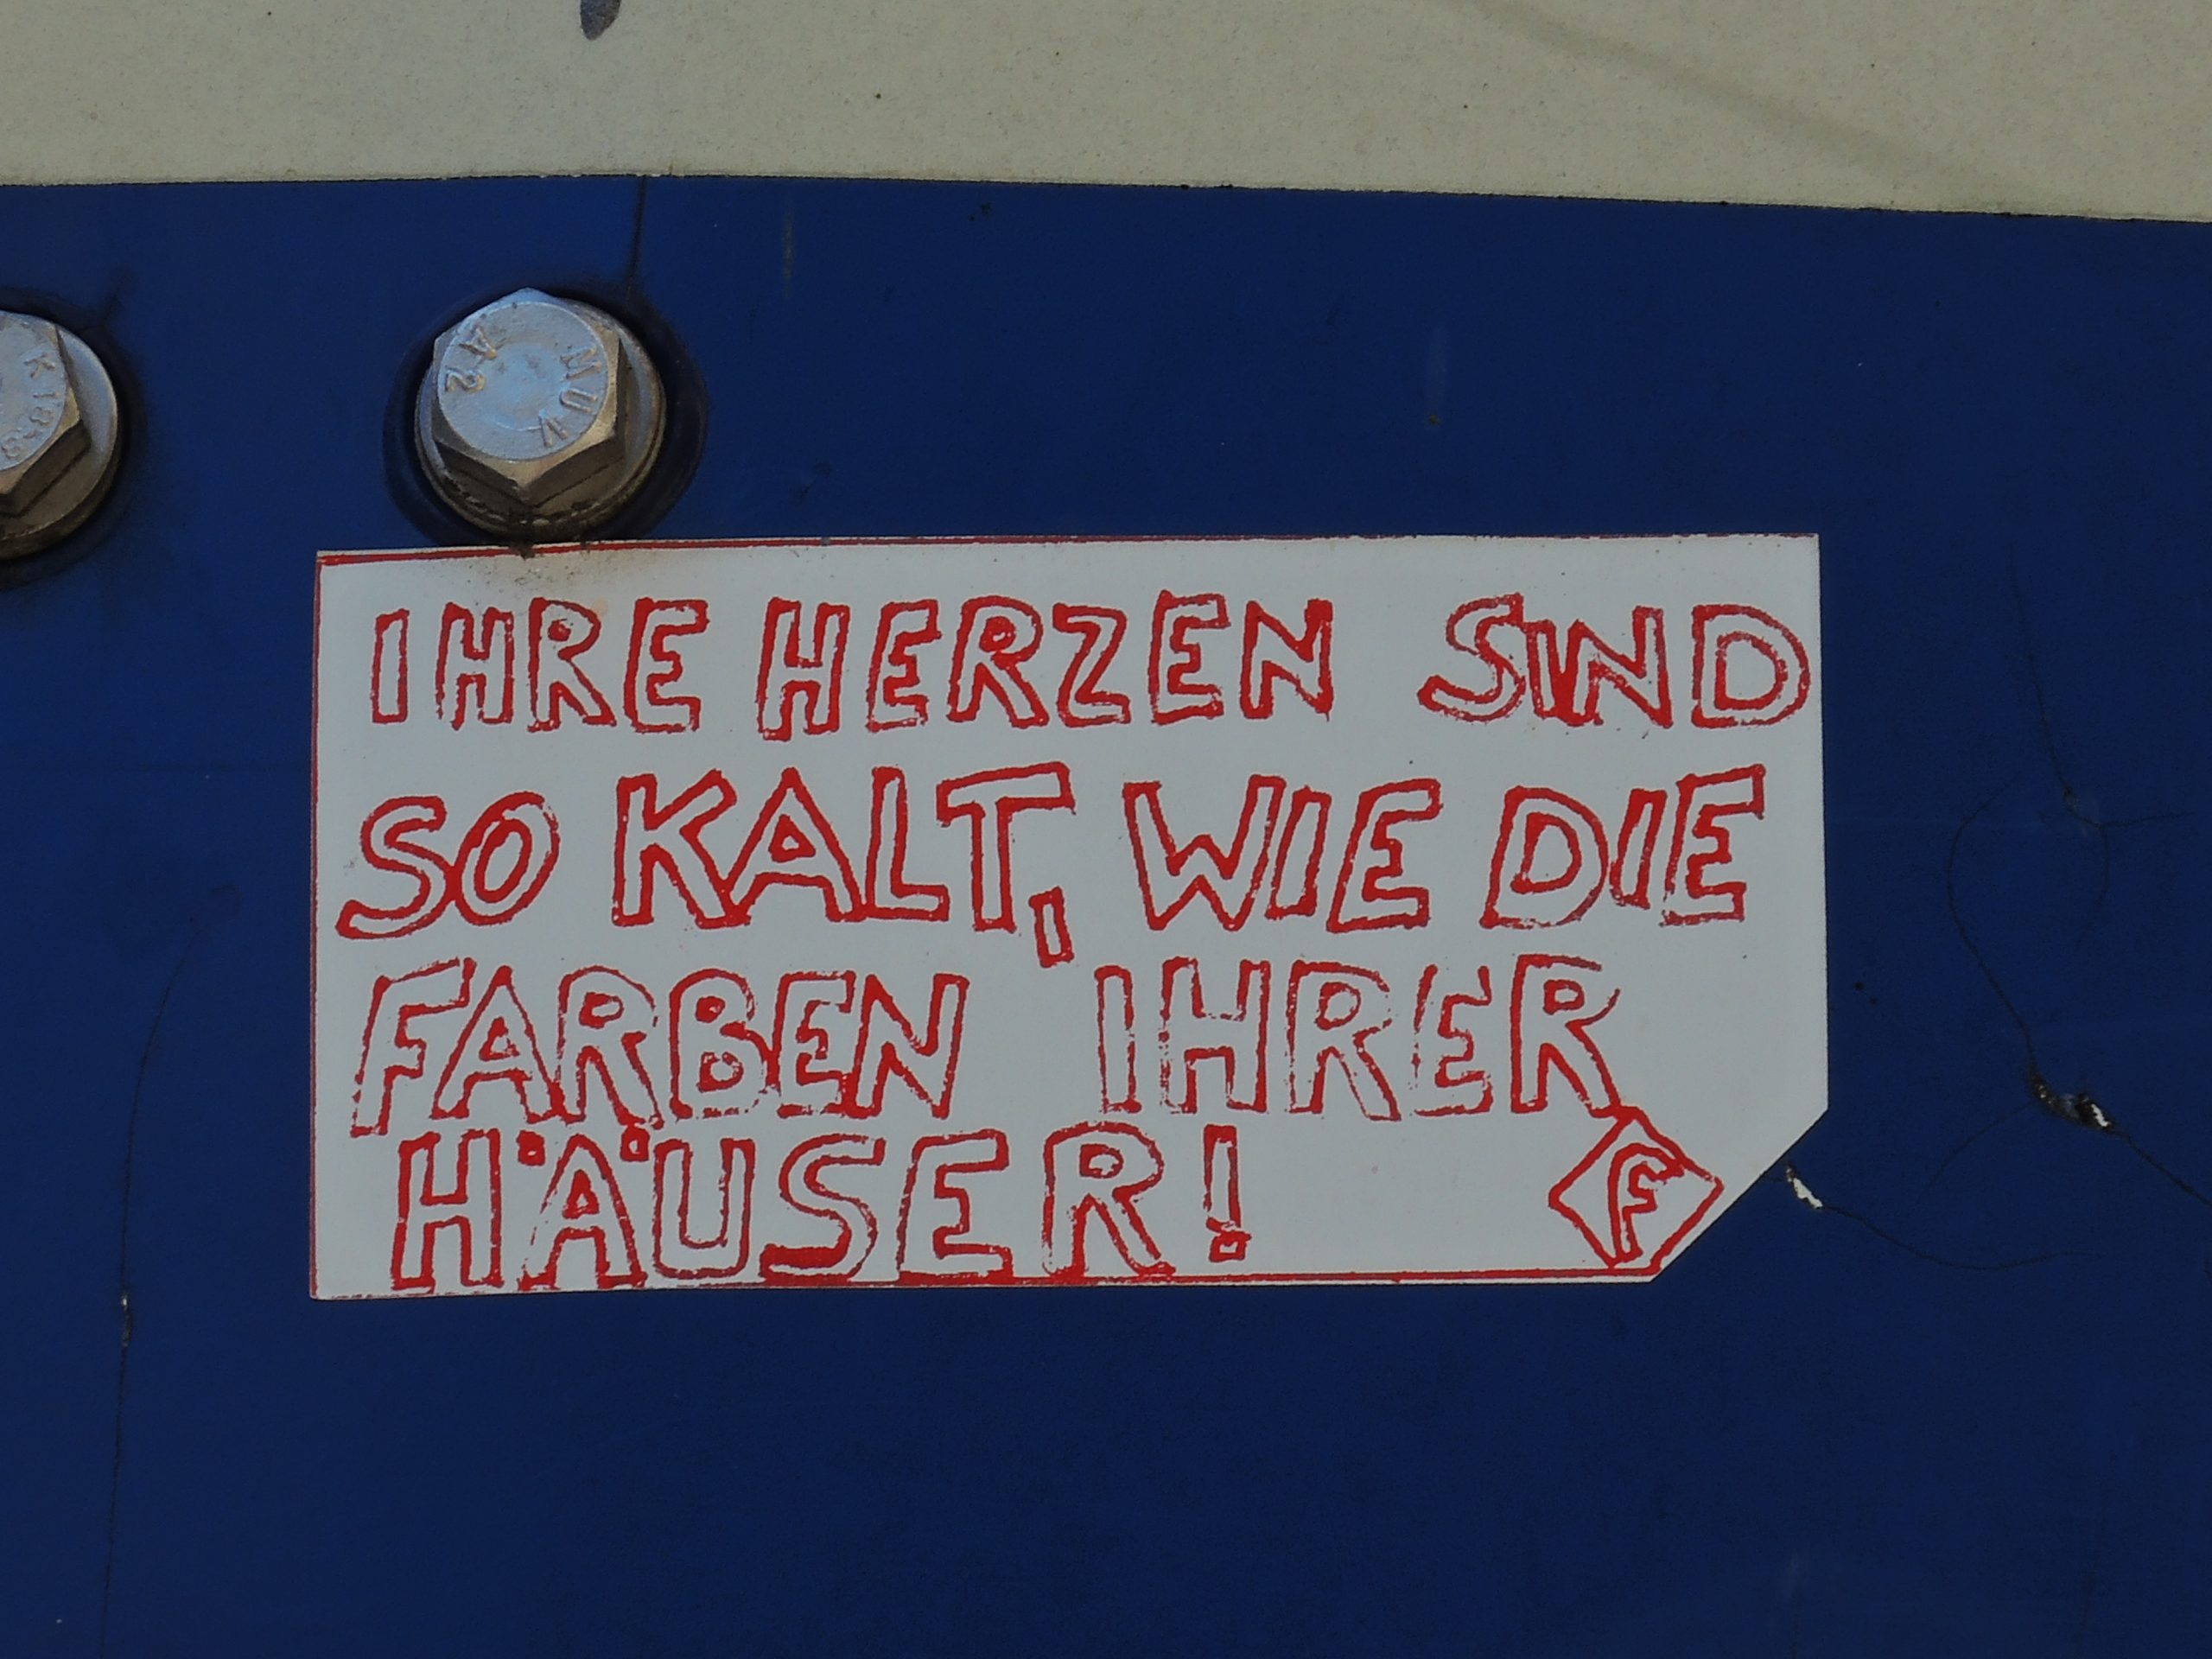 A2 MUK
IHRE HERZEN SIND
SO KALT, WIE DIE
FARBEN IHRER
HÄUSER!
F